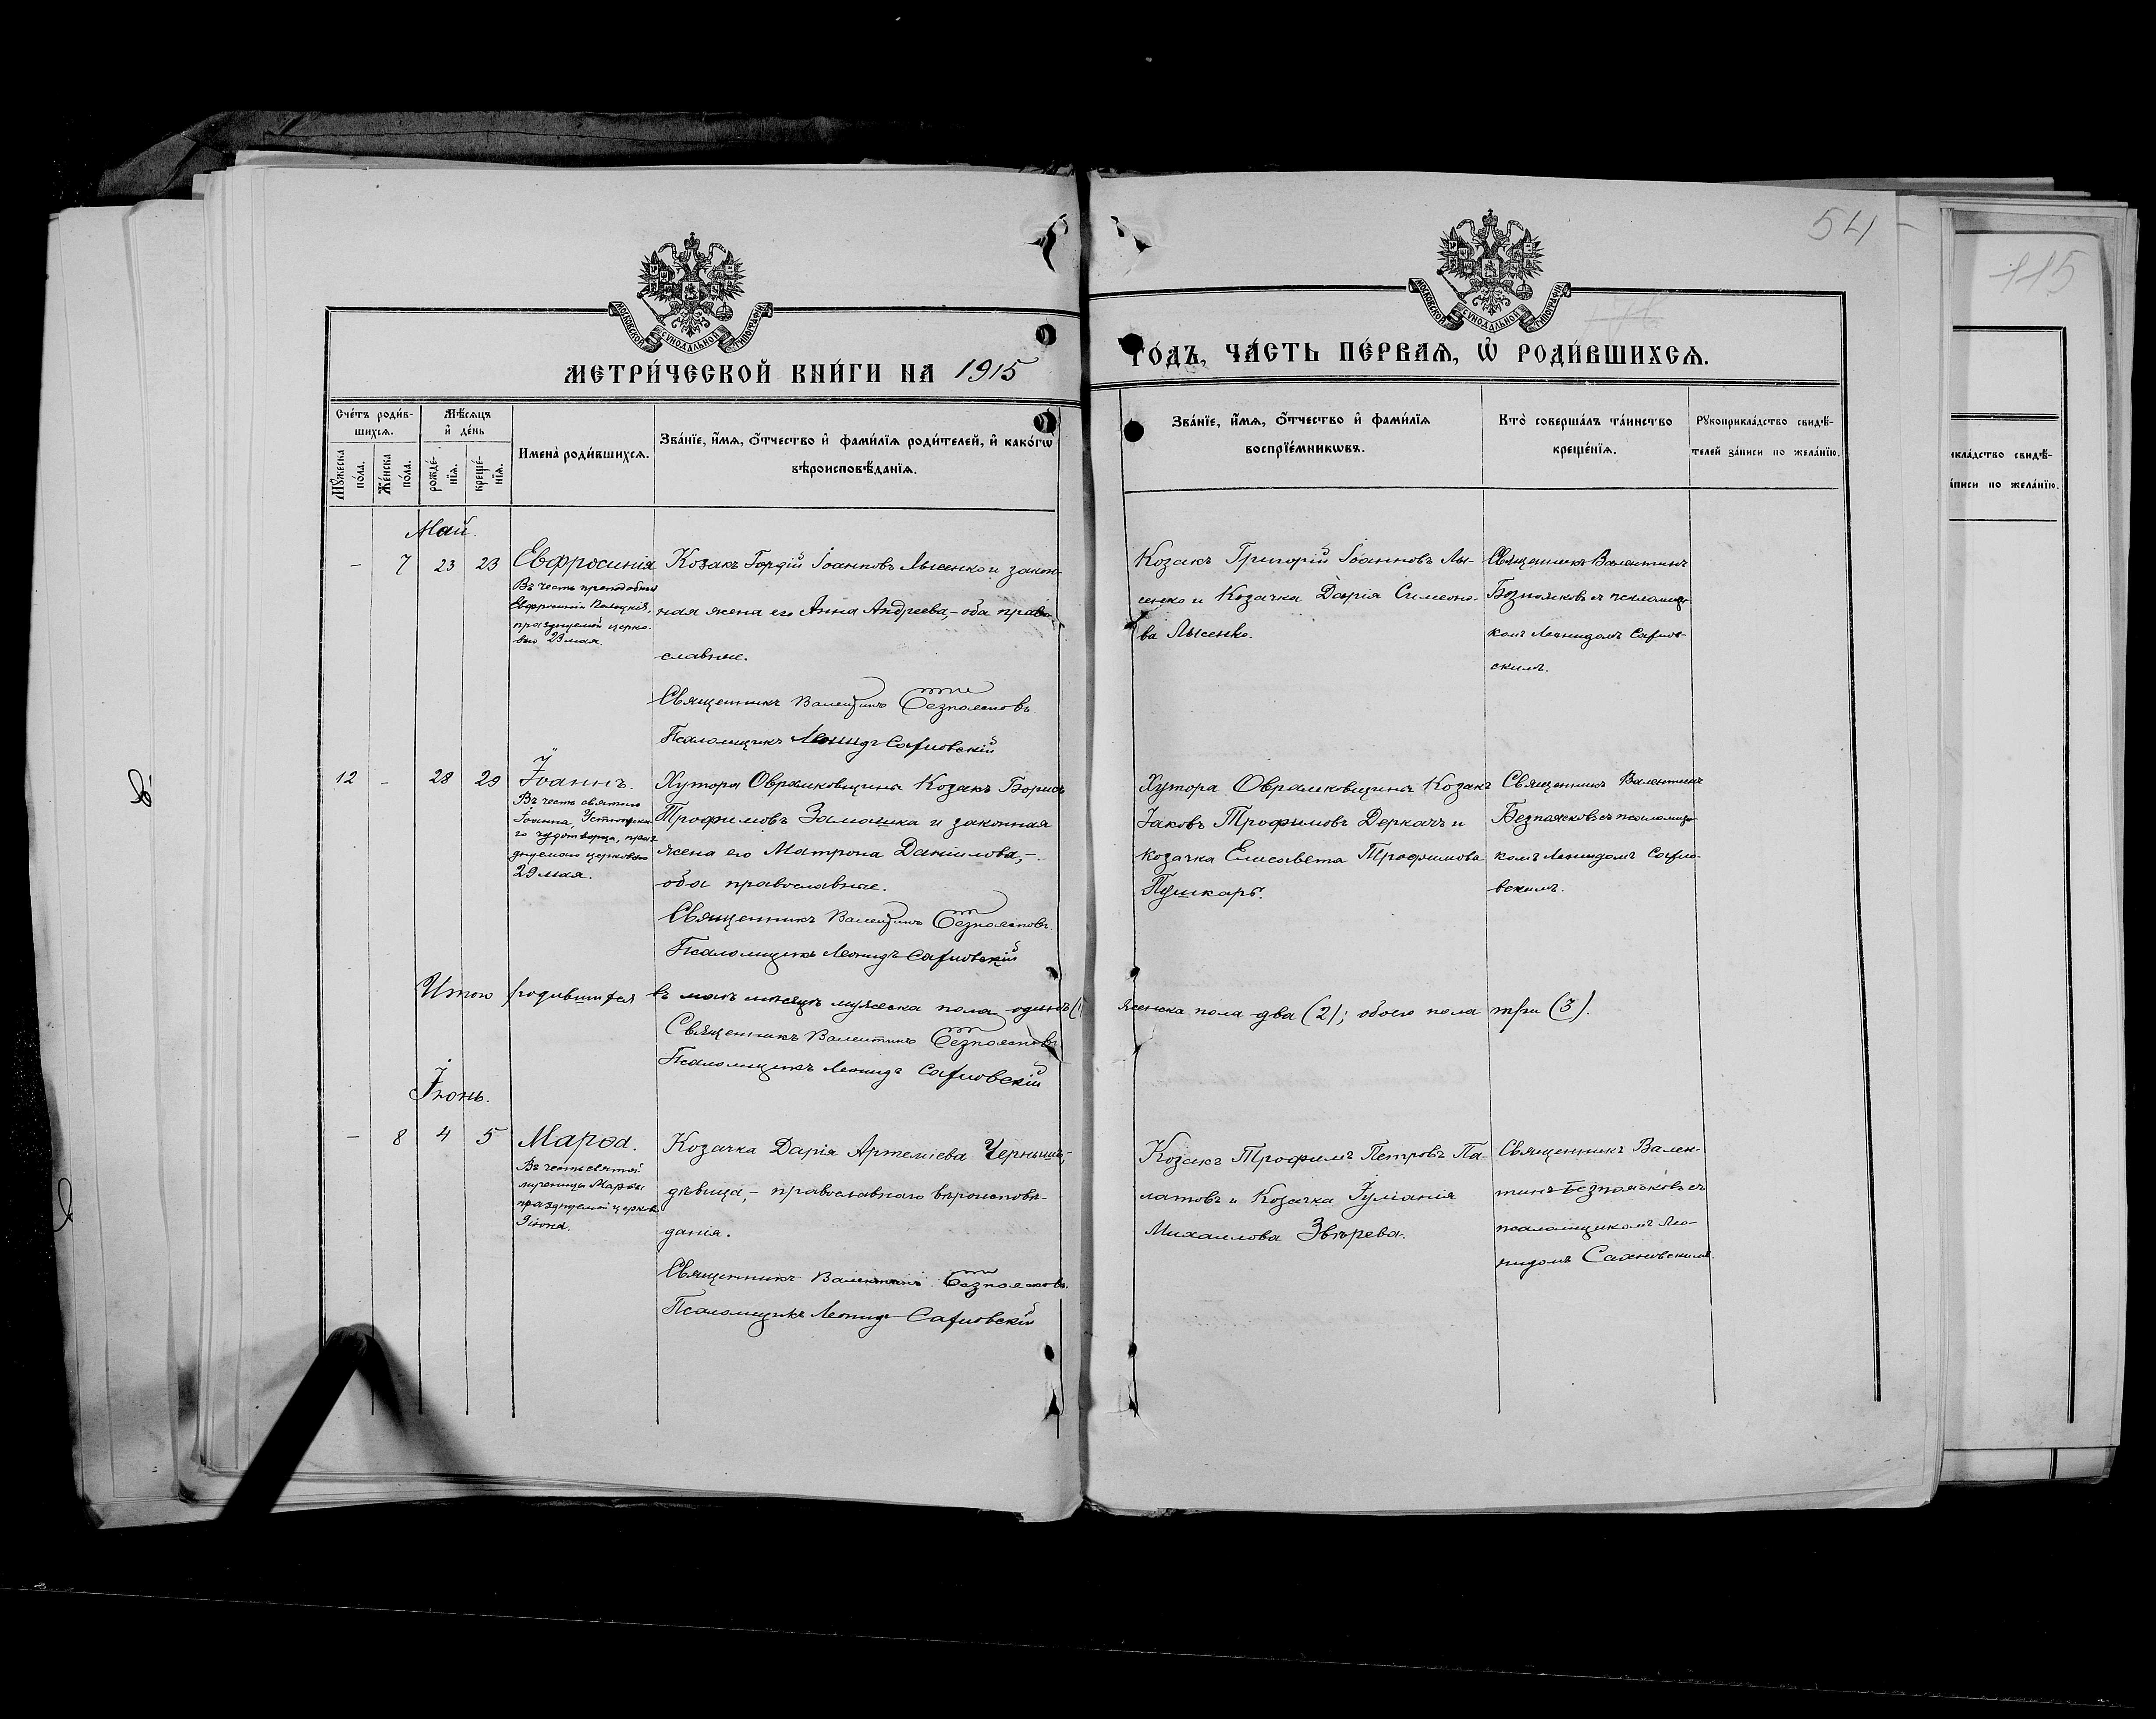 54
115
МОСКОВСКОЙ СѴНОДАЛЬНОЙ ТИПОГРАФІИ
МОСКОВСКОЙ СѴНОДАЛЬНОЙ ТИПОГРАФІИ
МЕТРИ́ЧЕСКОЙ КНИ́ГИ НА 1915
ГО́ДЪ, ЧА́СТЬ ПЕ́РВАѦ, Ѡ҆ РОДИ́ВШИХСѦ.
Сче́тъ роди́в-
шихсѧ.
Мꙋ́жеска по́ла.
Же́нска по́ла.
Мѣ́сѧцъ
и҆ де́нь
рожде́-
нїѧ.
креще́-
нїѧ.
Имена̀ роди́вшихсѧ.
Зва́нїе, и҆́мѧ, ѻ҆́тчество и҆ фами́лїѧ роди́телей, и҆ како́гѡ
вѣроисповѣ́данїѧ.
Зва́нїе, и҆́мѧ, ѻ҆́тчество и҆ фами́лїѧ
воспрїе́мникѡвъ.
Кто̀ соверша́лъ та́инство
креще́нїѧ.
Рꙋкоприкла́дство свидѣ́-
телей за́писи по жела́нїю.
икла́дство свидѣ́-
а́писи по жела́нїю.
Май.
— 7 23 23 Евфросинія
Въ честь преподобныя
Евфросиніи Полоцкія,
празднуемой церко-
вью 23 мая.
Козакъ Гордій Іоанновъ Лысенко и закон-
ная жена его Анна Андреева,- оба право-
славные.
Священникъ Валентинъ Безпоясковъ.
Псаломщикъ Леонидъ Сахновскій
Козакъ Григорій Іоанновъ Лы-
сенко и Козачка Дарія Симеоно-
ва Лысенко.
Священникъ Валентинъ
Безпоясковъ съ псаломщи-
комъ Леонидомъ Сахнов-
скимъ.
12 - 28 29 Іоаннъ.
Въ честь святого
Іоанна, Устюжска-
го чудотворца, праз-
днуемаго церковью
29 мая.
Хутора Оврамковщины Козакъ Борисъ
Трофимовъ Замашка и законная
жена его Матрона Даніилова,-
оба православные.
Священникъ Валентинъ Безпоясковъ.
Псаломщикъ Леонидъ Сахновскій
Хутора Оврамковщины Козакъ
Іаковъ Трофимовъ Деркачъ и
козачка Елисавета Трофимова
Пушкарь.
Священникъ Валентинъ
Безпоясковъ съ псаломщи-
комъ Леонидомъ Сахно-
вскимъ.
Итого родившихся въ маѣ мѣсяцѣ мужеска пола одинъ (1
женска пола два (2); обоего пола три (3).
Священникъ Валентинъ Безпоясковъ
Псаломщикъ Леонидъ Сахновскій
Іюнь.
— 8 4 5 Марѳа.
Въ честь святой
мученицы Марѳы
празднуемой церковью
9 іюня.
Козачка Дарія Артеміева Чернышъ,-
дѣвица,- православнаго вѣроисповѣ-
данія.
Священникъ Валентинъ Безпоясковъ.
Псаломщикъ Леонидъ Сахновскій
Козакъ Трофимъ Петровъ Па-
латовъ и Козачка Іуліанія
Михаилова Звѣрева.
Священникъ Вален-
тинъ Безпоясковъ съ
псаломщикомъ Лео-
нидомъ Сахновскимъ.